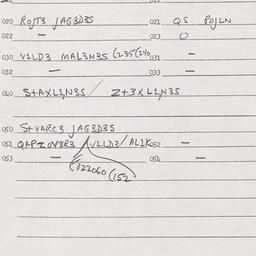 020 ROJT3 JAG3D3S 021 QS POJLN
022 — 023 O
030 V1LD3 MAL3N3S (235(240 031 —
032 — 033 —
040 S+AXL1N3S / Z+3XL1N3S
050 S+VARC3 JAG3D3S
051 QAPZOV3R3 /V1LD3/AL1K 052 —
053 — 054 —
(122060 (152